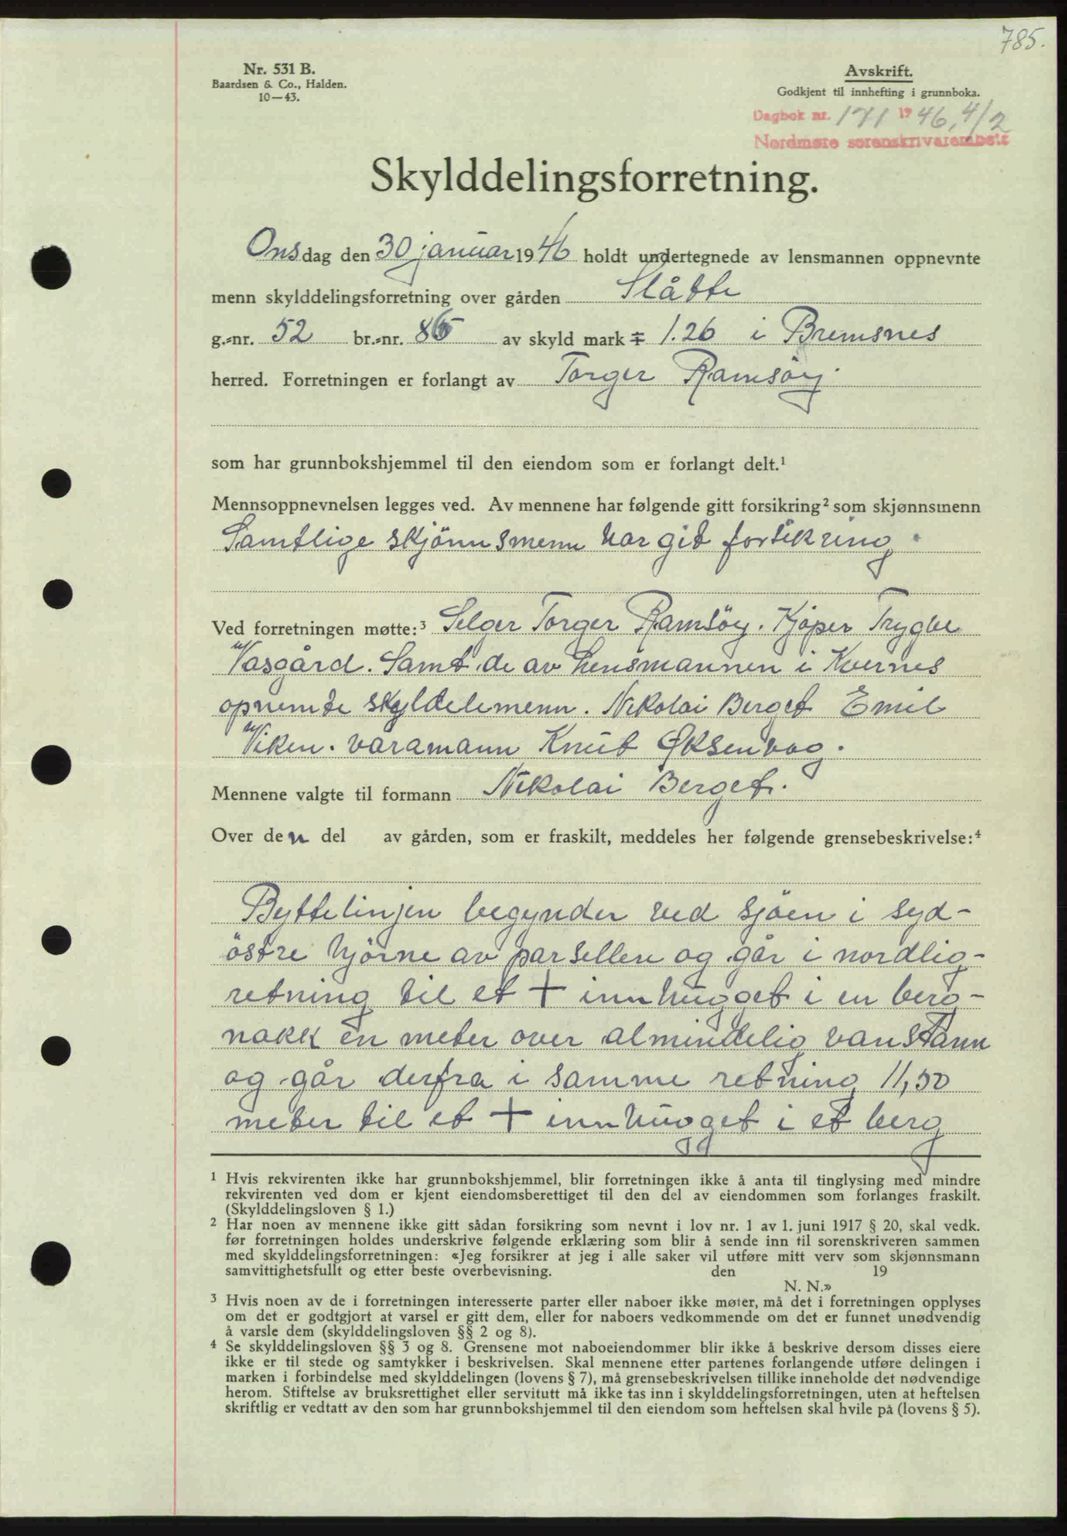 785.
Nr. 531 B.
Baardsen & Co., Halden.
10—43.
Avskrift.
Godkjent til innhefting i grunnboka.
Dagbok nr. 171 1946, 4/2
Nordmøre sorenskriverembete
Skylddelingsforretning.
Onsdag den 30 januar 1946 holdt undertegnede av lensmannen oppnevnte
menn skylddelingsforretning over gården Slåtte
g.-nr. 52 br.-nr. 86 av skyld mark 1.26 i Bremsnes
herred. Forretningen er forlangt av Torger Ramsöy.
som har grunnbokshjemmel til den eiendom som er forlangt delt.¹
Mennsoppnevnelsen legges ved. Av mennene har følgende gitt forsikring² som skjønnsmenn
Samtlige skjönnsmenn har git forsikring.
Ved forretningen møtte:³ Selger Torger Ramsöy. Kjöper Trygve
Vasgård. Samt de av Lensmannen i Kvernes
opnemte skyldelemenn. Nikolai Berget Emil
Viken. varamann Knut Øksenvag.
Mennene valgte til formann Nikolai Berget.
Over den del av gården, som er fraskilt, meddeles her følgende grensebeskrivelse:⁴
Byttelinjen begynder ved sjöen i syd-
östre hjörne av parsellen og går i nordlig-
retning til et + innhugget i en berg-
nakk en meter over almindelig vanstann
og går derfra i samme retning 11,50
meter til et + innhugget i et berg
¹ Hvis rekvirenten ikke har grunnbokshjemmel, blir forretningen ikke å anta til tinglysing med mindre
rekvirenten ved dom er kjent eiendomsberettiget til den del av eiendommen som forlanges fraskilt.
(Skylddelingsloven § 1.)
² Har noen av mennene ikke gitt sådan forsikring som nevnt i lov nr. 1 av 1. juni 1917 § 20, skal vedk.
før forretningen holdes underskrive følgende erklæring som blir å sende inn til sorenskriveren sammen
med skylddelingsforretningen: «Jeg forsikrer at jeg i alle saker vil utføre mitt verv som skjønnsmann
samvittighetsfullt og etter beste overbevisning. den 19
N. N.»
³ Hvis noen av de i forretningen interesserte parter eller naboer ikke møter, må det i forretningen opplyses
om det er godtgjort at varsel er gitt dem, eller for naboers vedkommende om det er funnet unødvendig
å varsle dem (skylddelingsloven §§ 2 og 8).
⁴ Se skylddelingsloven §§ 3 og 8. Grensene mot naboeiendommer blir ikke å beskrive dersom disses eiere
ikke er til stede og samtykker i beskrivelsen. Skal mennene etter partenes forlangende utføre delingen i
marken i forbindelse med skylddelingen (lovens § 7), må grensebeskrivelsen tillike inneholde det nødvendige
herom. Stiftelse av bruksrettighet eller servitutt må ikke tas inn i skylddelingsforretningen, uten at heftelsen
skriftlig er vedtatt av den som har grunnbokshjemmel til den eiendom som heftelsen skal hvile på (lovens § 5).